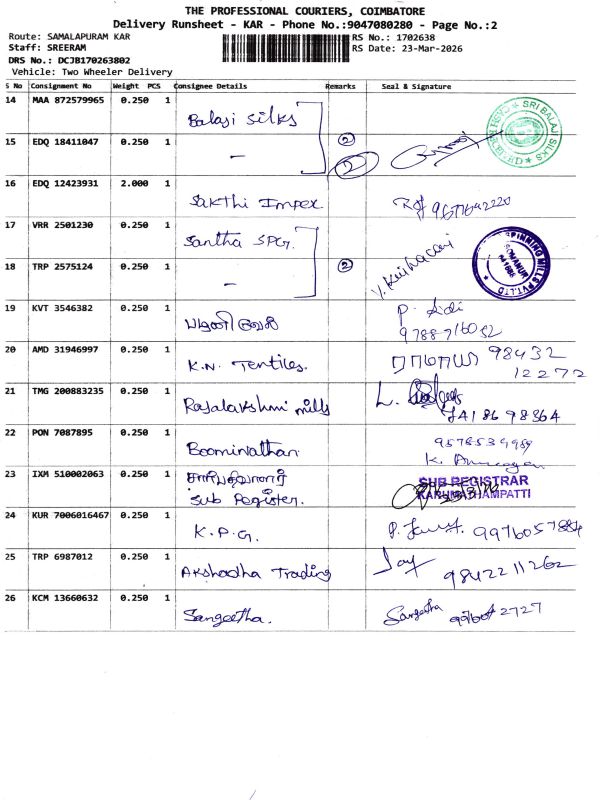 THE PROFESSIONAL COURIERS, COIMBATORE
Delivery Runsheet - KAR - Phone No.:9047080280 - Page No.:2
Route: SAMALAPURAM KAR
RS No.: 1702638
Staff: SREERAM
RS Date: 23-Mar-2026
DRS No.: DCJB170263802
Vehicle: Two Wheeler Delivery
S No Consignment No Weight PCS Consignee Details Remarks Seal & Signature
14 MAA 872579965 0.250 1 Balaji Silks SRI BALAJI SILKS
15 EDQ 18411047 0.250 1 – 2 2
16 EDQ 12423931 2.000 1 Sakthi Impex
17 VRR 2501230 0.250 1 Santha SPG. SPINNING MILLS PVT.LTD SOMANUR
18 TRP 2575124 0.250 1 – 2
19 KVT 3546382 0.250 1 P.
20 AMD 31946997 0.250 1 K.N. Textiles. 98432
12272
21 TMG 200883235 0.250 1 Rajalakshmi mills L.
22 PON 7087895 0.250 1 Boominathan
23 IXM 510002063 0.250 1 Sub Register. SUB REGISTRAR
KARUMATHAMPATTI
24 KUR 7006016467 0.250 1 K.P.G.
25 TRP 6987012 0.250 1 Akshadha Trading Jay 9842211262
26 KCM 13660632 0.250 1 Sangeetha. Sangeetha